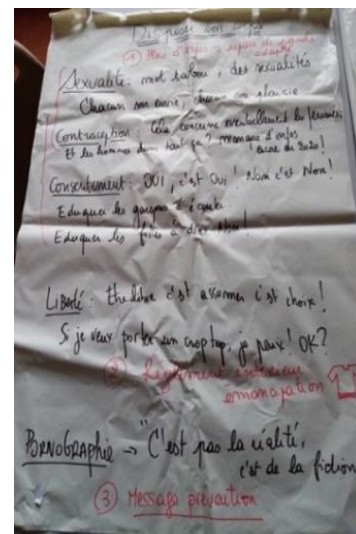 Disposer son corps
① Plus d'infos
adapté
Sexualité : mot tabou, des sexualités
Chacun son envie, chacun son plaisir
Contraception : Cela concerne essentiellement les femmes
Et les hommes dans tout ça ? manque d'infos
encore en 2020 !
Consentement : OUI, c'est Oui ! Non c'est Non !
Eduquer les garçons à écouter
Eduquer les filles à dire Non !
Liberté : Etre libre c'est assumer c'est choix !
Si je veux porter un crop top, je peux ! OK ?
② Règlement intérieur
émancipation
PORNOGRAPHIE → "C'est pas la réalité,
c'est de la fiction
③ Message prévention